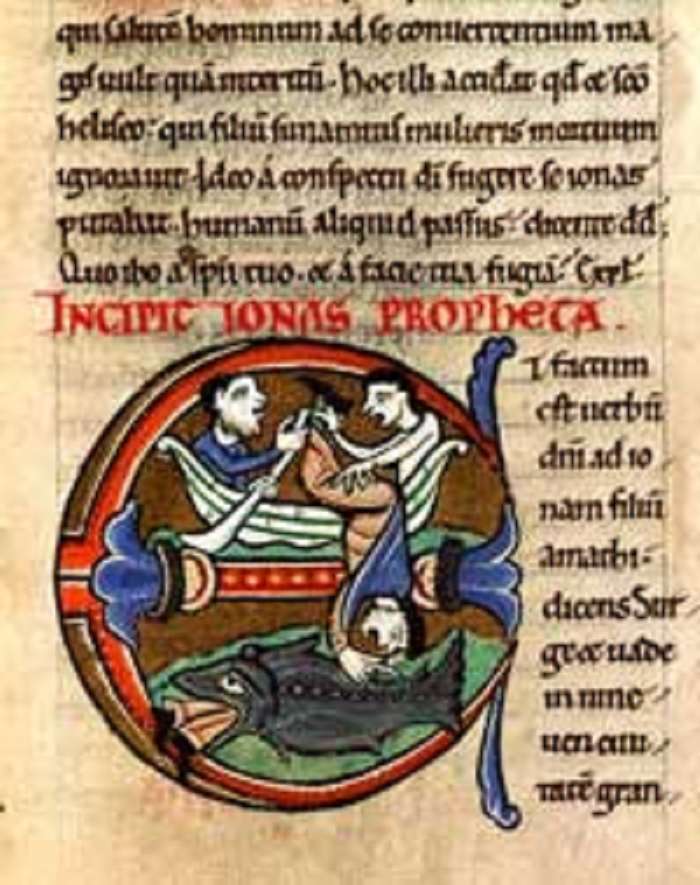 qui salutē hominum ad se conuertentium ma
gis uult quā interitū. hoc illi accidit qđ & sc̄o
heliseo: qui filiū sunamitis mulieris mortuum
ignorauit. Ideo á conspectu dī fugere se ionas
putabat. humanū aliquid passus. dicente dd̄;
Quo ibo a spū tuo. & á facie tua fugiā? Expt̄.
INCIPIT IONAS PROPHETA.
ET factum
est uerbū
dn̄i ad io
nam filiū
amathi.
dicens Sur
ge & uade
in nine
uen ciui
tatē gran